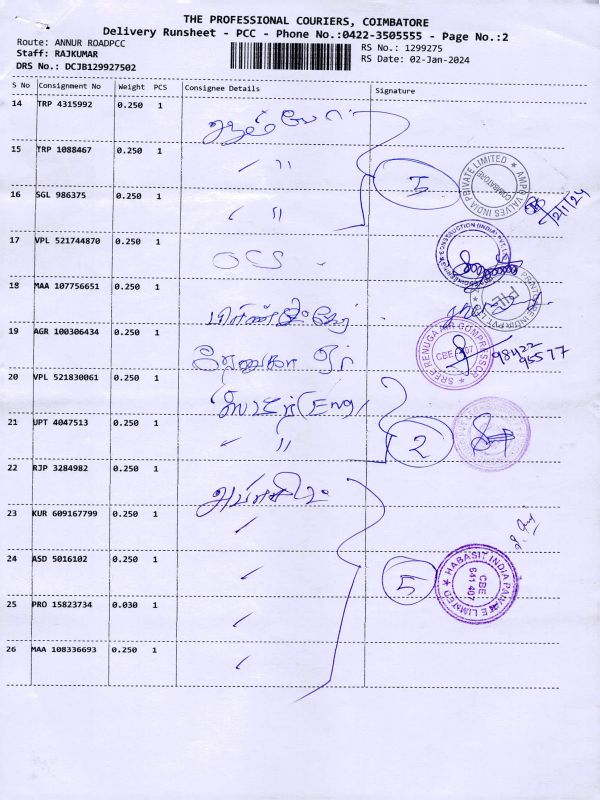 THE PROFESSIONAL COURIERS, COIMBATORE
Delivery Runsheet - PCC - Phone No.:0422-3505555 - Page No.:2
Route: ANNUR ROADPCC
RS No.: 1299275
Staff: RAJKUMAR
RS Date: 02-Jan-2024
DRS No.: DCJB129927502
S No Consignment No Weight PCS Consignee Details Signature
14 TRP 4315992 0.250 1
15 TRP 1088467 0.250 1 〃
5
AMPO VALVES INDIA PRIVATE LIMITED
COIMBATORE
16 SGL 986375 0.250 1 〃
2/1/24
17 VPL 521744870 0.250 1 OCS
CONSTRUCTION (INDIA) PVT
18 MAA 107756651 0.250 1
19 AGR 100306434 0.250 1
SREE RENUGA AIR COMPRESSOR
CBE
98422
95577
20 VPL 521830061 0.250 1 (Eng)
21 UPT 4047513 0.250 1 〃
2
22 RJP 3284982 0.250 1
23 KUR 609167799 0.250 1
24 ASD 5016102 0.250 1
5
HABASIT INDIA PRIVATE LIMITED
CBE
641 407
25 PRO 15823734 0.030 1
26 MAA 108336693 0.250 1